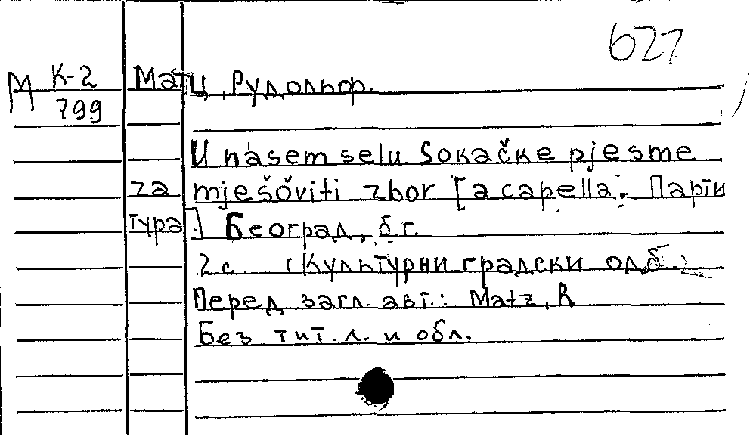 627
М К-2
799
Матц, Рудольф.
U nasem selu Sокаčке pjesme
za mješoviti zbor [a capella. Парти
тура.] Београд, б.г.
2 с. (Културни градски одб.)
Перед загл. авт.: Matz, R
Без тит. л. и обл.